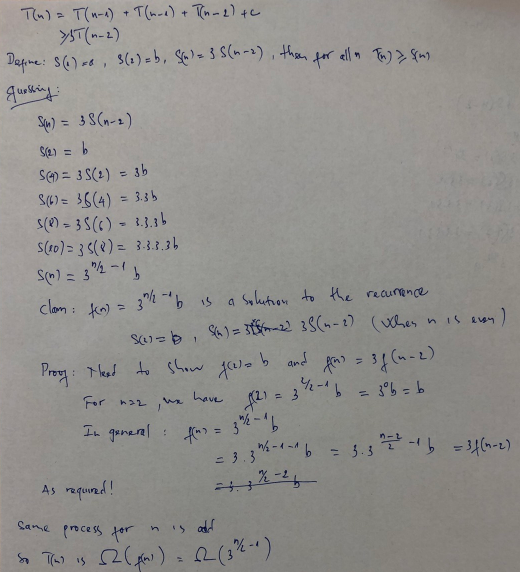 T(n) = T(n-1) + T(n-1) + T(n-2) + c
≥ 3T(n-2)
Define: S(1)=a, S(2)=b, S(n)=3S(n-2), then for all n T(n) ≥ S(n)
guessing:
S(n) = 3S(n-2)
S(2) = b
S(4) = 3S(2) = 3b
S(6) = 3S(4) = 3.3b
S(8) = 3S(6) = 3.3.3b
S(10) = 3S(8) = 3.3.3.3b
S(n) = 3^{n/2 - 1} b
Claim: f(n) = 3^{n/2 - 1} b is a solution to the recurrence
S(2) = b, S(n) = 3S(n-2) (when n is even)
Proof: Need to show f(2) = b and f(n) = 3f(n-2)
For n=2, we have f(2) = 3^{2/2 - 1} b = 3^0 b = b
In general: f(n) = 3^{n/2 - 1} b
= 3.3^{n/2 - 1 - 1} b = 3.3^{\frac{n-2}{2} - 1} b = 3f(n-2)
As required! = 3.3^{n/2 - 2} b
Same process for n is odd
So T(n) is Ω(f(n)) = Ω(3^{n/2 - 1})